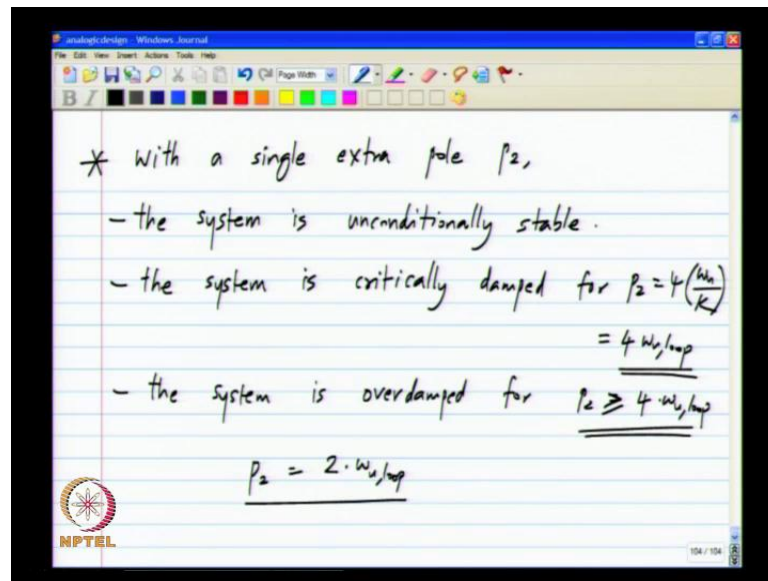 analogicdesign - Windows Journal
File Edit View Insert Actions Tools Help
Page Width
B I
* With a single extra pole p₂,
- the system is unconditionally stable.
- the system is critically damped for p₂ = 4(ωu/K)
= 4 ωu,loop
- the system is overdamped for p₂ ≥ 4·ωu,loop
p₂ = 2·ωu,loop
NPTEL
104 / 104